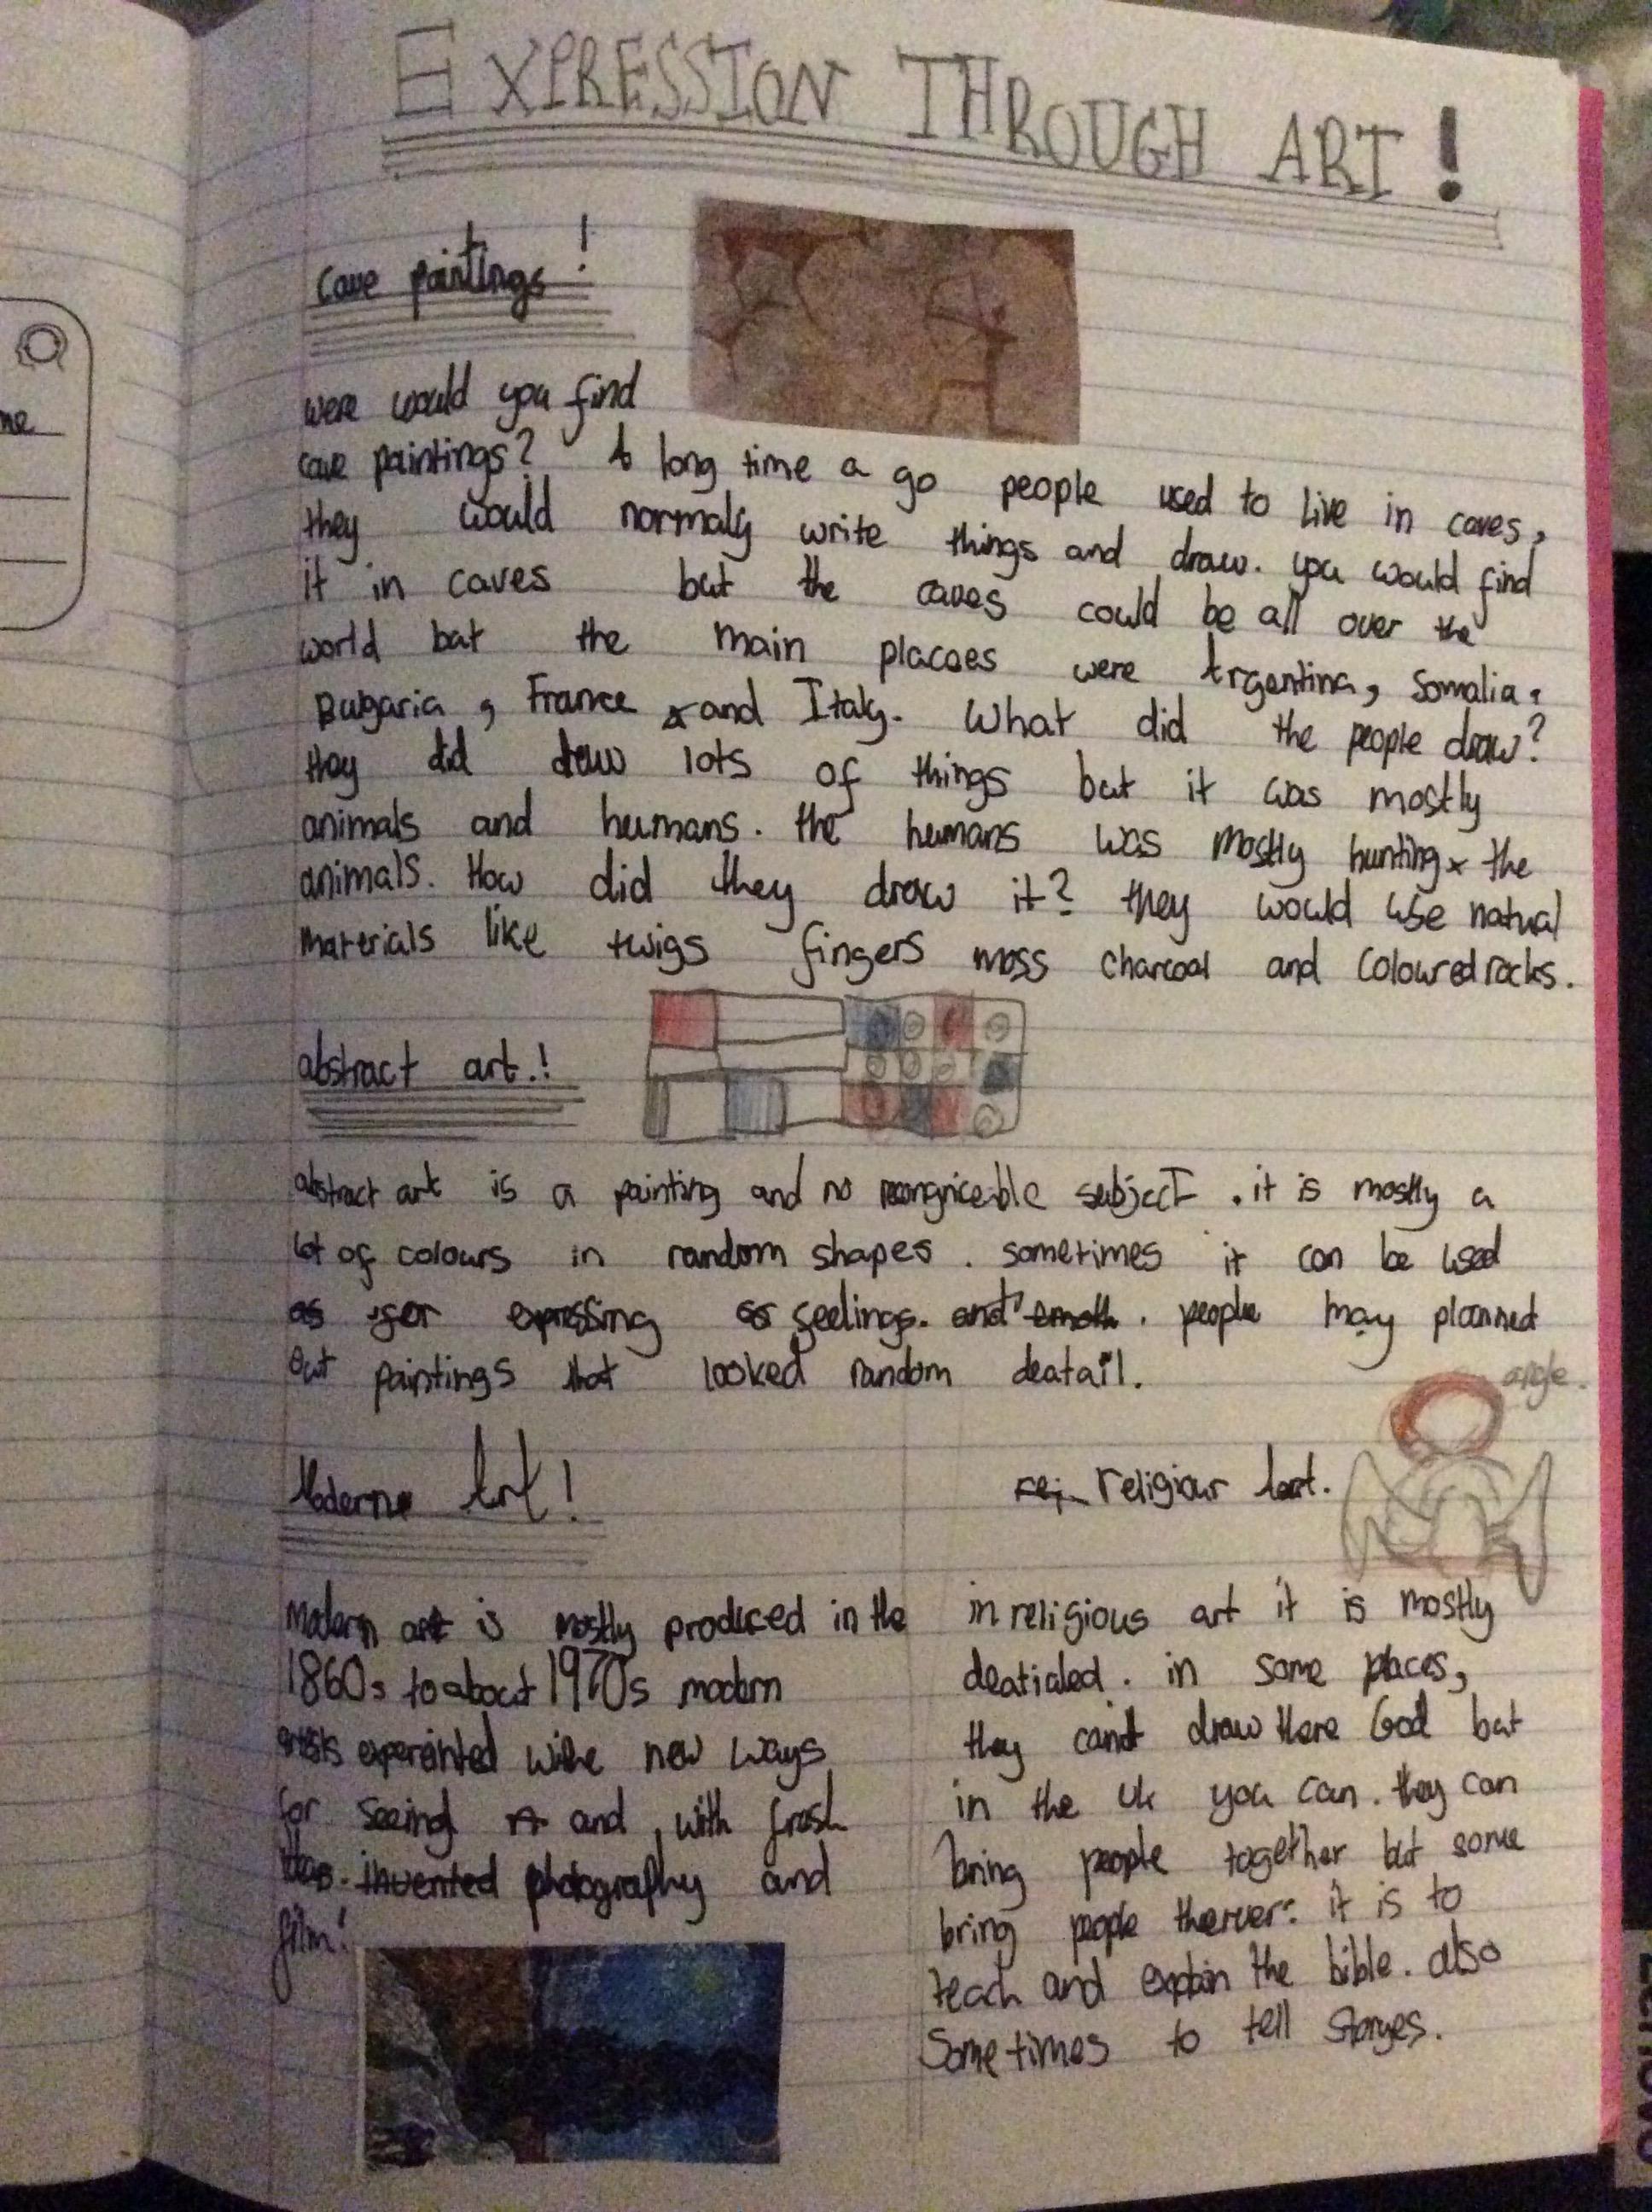 EXPRESSION THROUGH ART!
cave paintings!
were would you find
cave paintings? A long time a go people used to live in caves,
they would normaly write things and draw. you would find
it in caves but the caves could be all over the
world bat the main placoes were Argentina, Somalia,
Bulgaria, France and Italy. What did the people draw?
they did draw lots of things but it was mostly
animals and humans. the humans was mostly hunting the
animals. How did they draw it? they would use natural
materials like twigs fingers moss charcoal and coloured rocks.
abstract art.!
abstract art is a painting and no subject. it is mostly a
lot of colours in random shapes. sometimes it can be used
as for expressing feelings. and . people may planned
out paintings that looked random deatail.
angle.
Moderne Art!
modern art is mostly produced in the
1860s to about 1970s modern
artists new ways
for seeing and, with fresh
ideas. invented photography and
film!
rej religiour Aart.
in religious art it is mostly
deatialed. in some places,
they cant draw there God but
in the uk you can. they can
bring people together but some
bring people it is to
teach and explain the bible. also
Sometimes to tell storyes.